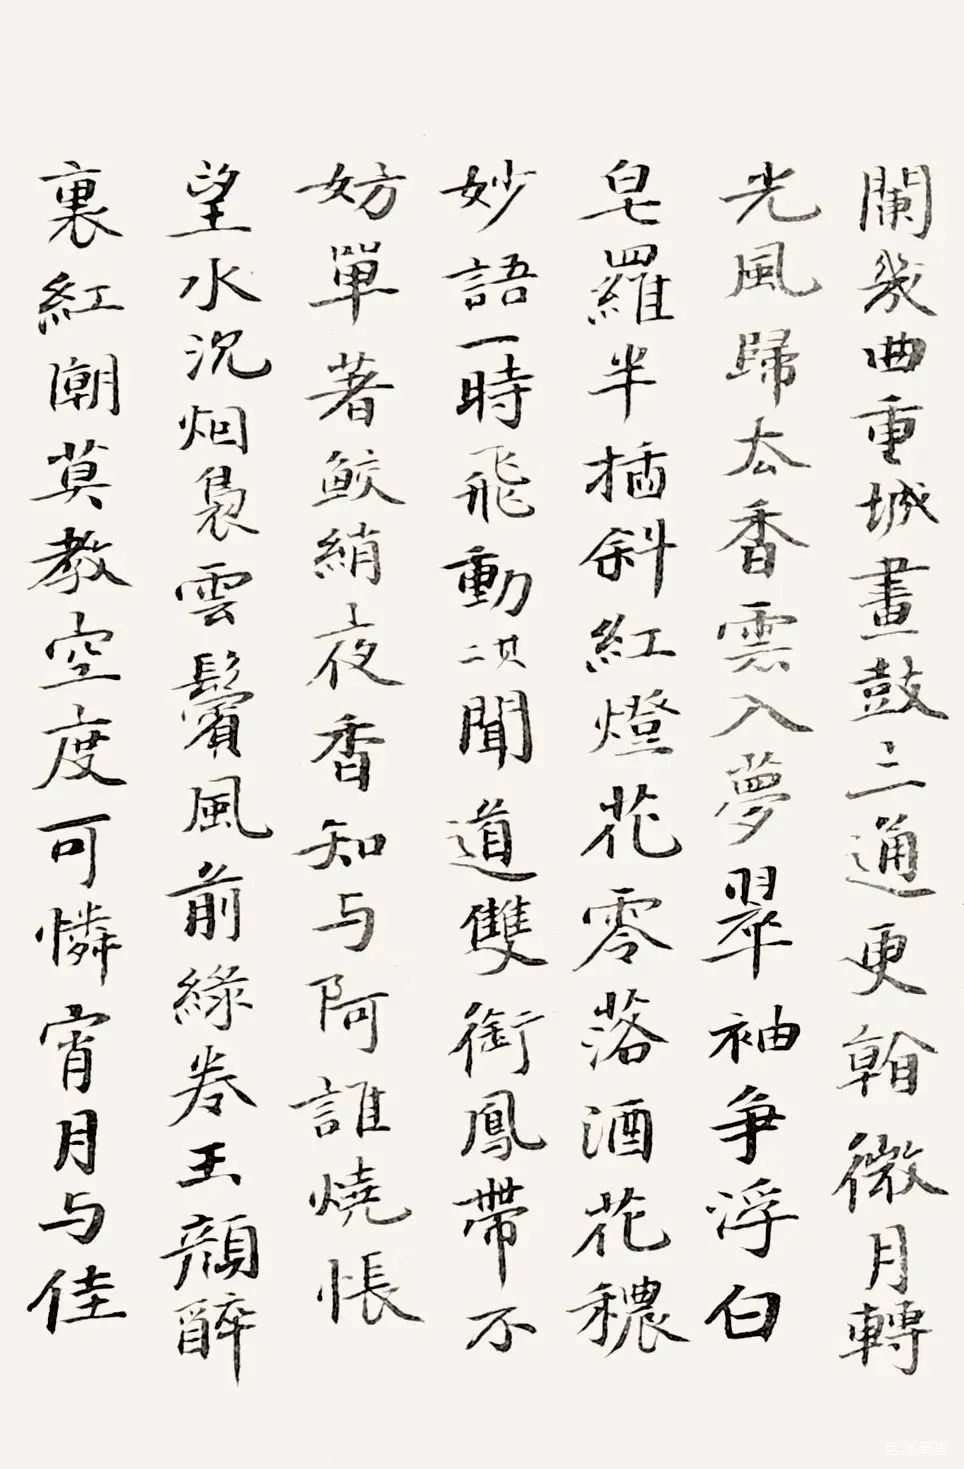 闌幾曲重城畫鼓三通更斡微月轉
光風歸去香雲入夢翠袖爭浮白
皂羅半插斜紅燈花零落酒花穠
妙語一時飛動 聞道雙銜鳳帶不
妨單著鮫綃夜香知与阿誰燒悵
望水沉烟裊雲鬢風前綠卷玉顏醉
裏紅潮莫教空度可憐宵月与佳